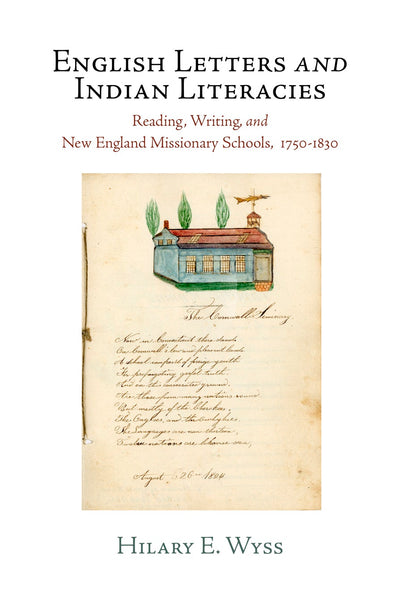 ENGLISH LETTERS AND
INDIAN LITERACIES
Reading, Writing, and
New England Missionary Schools, 1750-1830
The Cornwall Seminary
Now in Connecticut there stands
On Cornwall's low and pleasant lands
A school compos'd of foreign youth
propagating gospel truth
And on consecrated ground
Are those from many nations round
But mostly of the
The and the owhyhees,
The Languages are now thirteen
Twelve nations are likewise seen,
August 26th 1824
HILARY E. WYSS